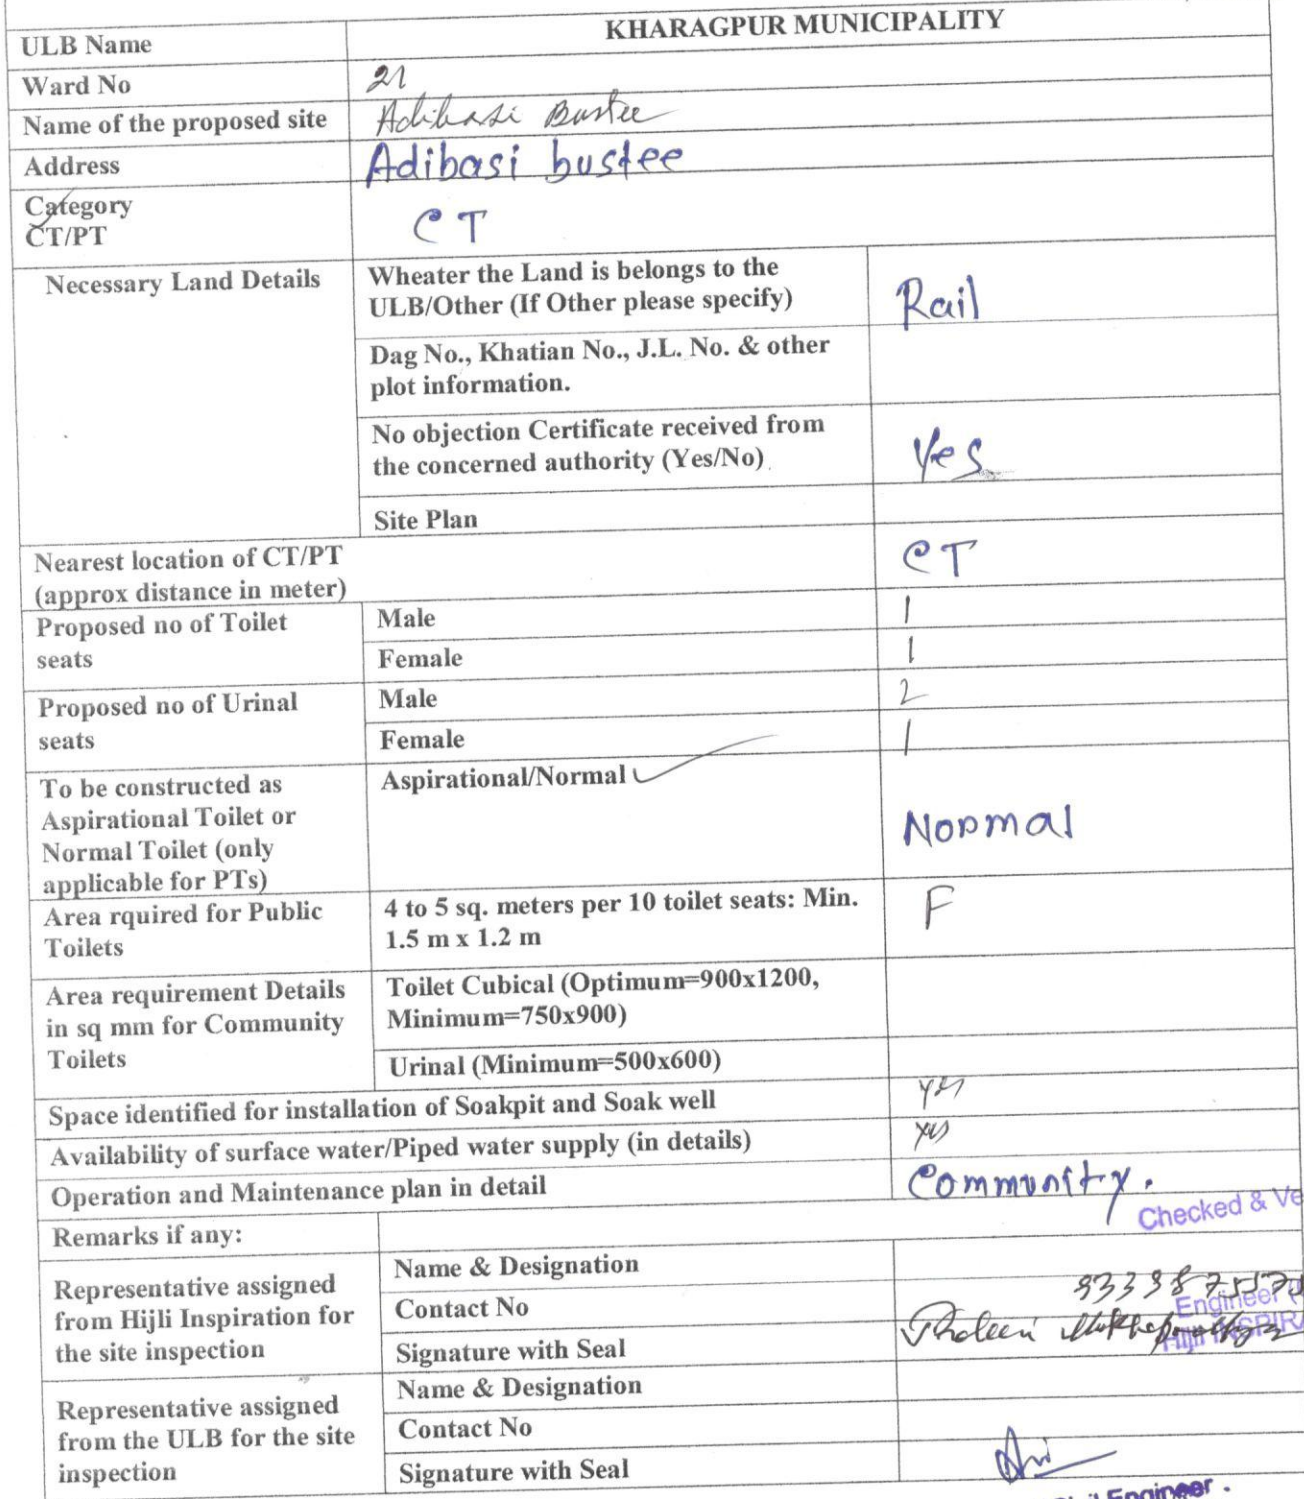 ULB Name KHARAGPUR MUNICIPALITY
Ward No 21
Name of the proposed site Adibasi Bustee
Address Adibasi bustee
Category
CT/PT CT
Necessary Land Details Wheater the Land is belongs to the
ULB/Other (If Other please specify) Rail
Dag No., Khatian No., J.L. No. & other
plot information.
No objection Certificate received from
the concerned authority (Yes/No) Yes
Site Plan
Nearest location of CT/PT
(approx distance in meter) CT
Proposed no of Toilet
seats
Male 1
Female 1
Proposed no of Urinal
seats
Male 2
Female 1
To be constructed as
Aspirational Toilet or
Normal Toilet (only
applicable for PTs)
Aspirational/Normal
Normal
Area rquired for Public
Toilets
4 to 5 sq. meters per 10 toilet seats: Min.
1.5 m x 1.2 m
F
Area requirement Details
in sq mm for Community
Toilets
Toilet Cubical (Optimum=900x1200,
Minimum=750x900)
Urinal (Minimum=500x600)
Space identified for installation of Soakpit and Soak well yes
Availability of surface water/Piped water supply (in details) yes
Operation and Maintenance plan in detail Community.
Checked & Ve
Remarks if any:
Representative assigned
from Hijli Inspiration for
the site inspection
Name & Designation
Contact No
Engineer
Signature with Seal
Hijli INSPIRA
Representative assigned
from the ULB for the site
inspection
Name & Designation
Contact No
Signature with Seal
Engineer.